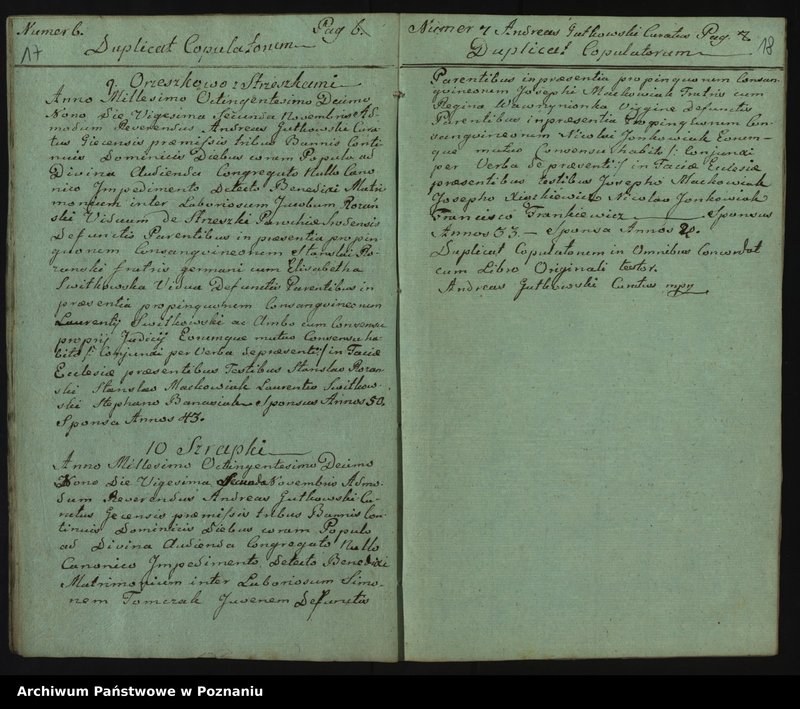 Numer 6. Pag 6.
17
Duplicat Copulatorum
9. Orzeszkowo z Strzeszkami
Anno Millesimo Octingentesimo Decimo
Nono Die Vigesima Secunda Novembris Ad-
modum Reverendus Andreas Gutkowski Cura-
tus Giecensis præmissis tribus Bannis Conti
nuis Dominicis Diebus coram Populo ad
Divina Audienda Congregato Nullo Cano
nico Impedimento Detecto Benedixi Matri
monium inter Laboriosum Jacobum Rozań
ski Viduum de Strzeszki Parochiæ Srodensis
Defunctis Parentibus in præsentia propin
quorum Consangvineorum Stanislai Ro-
zanski fratris germani cum Elisabetha
Switkowska Vidua Defunctis Parentibus in
præsentia propinquorum Consangvineorum
Laurentij Switkowski ac Ambo cum Consensu
proprij Judicij Eorumque mutuo Consensu ha-
bito /: Conjunxi per Verba de præsenti :/ in Faciæ
Ecclesiæ præsentibus Testibus Stanislao Rozan-
ski Stanislao Mackowiak Laurentio Switkow-
ski Stephano Banasiak Sponsus Annos 50.
Sponsa Annos 43.
10 Szrapki
Anno Millesimo Octingentesimo Decimo
Nono Die Vigesima Secunda Novembris Admo-
dum Reverendus Andreas Gutkowski Cu-
ratus Gecensis præmissis tribus Bannis Con-
tinuis Dominicis Diebus coram Populo
ad Divina Audienda Congregato Nullo
Canonico Impedimento Detecto Benedixi
Matrimonium inter Laboriosum Simo-
nem Tomczak Juvenem Defunctis
Numer 7 Andreas Gutkowski Curatus Pag. 7.
18
Duplicat Copulatorum
Parentibus in præsentia propinquorum Consan-
gvineorum Josephi Mackowiak Fratris cum
Regina Wawrynionka Virgine Defunctis
Parentibus in præsentia Propinquorum Con-
sangvineorum Nicolai Jonkowiak Eorum-
que mutuo Consensu habito /: Conjunxi
per Verba de præsenti :/ in Faciæ Eclesiæ
præsentibus testibus Josepho Mackowiak
Josepho Nicolao Jonkowiak
Francisco Frankiewicz Sponsus
Annos 33. Sponsa Annos
Duplicat Copulatorum in Omnibus Concordat
cum Libro Originali testor.
Andreas Gutkowski Curatus mpp
Archiwum Państwowe w Poznaniu